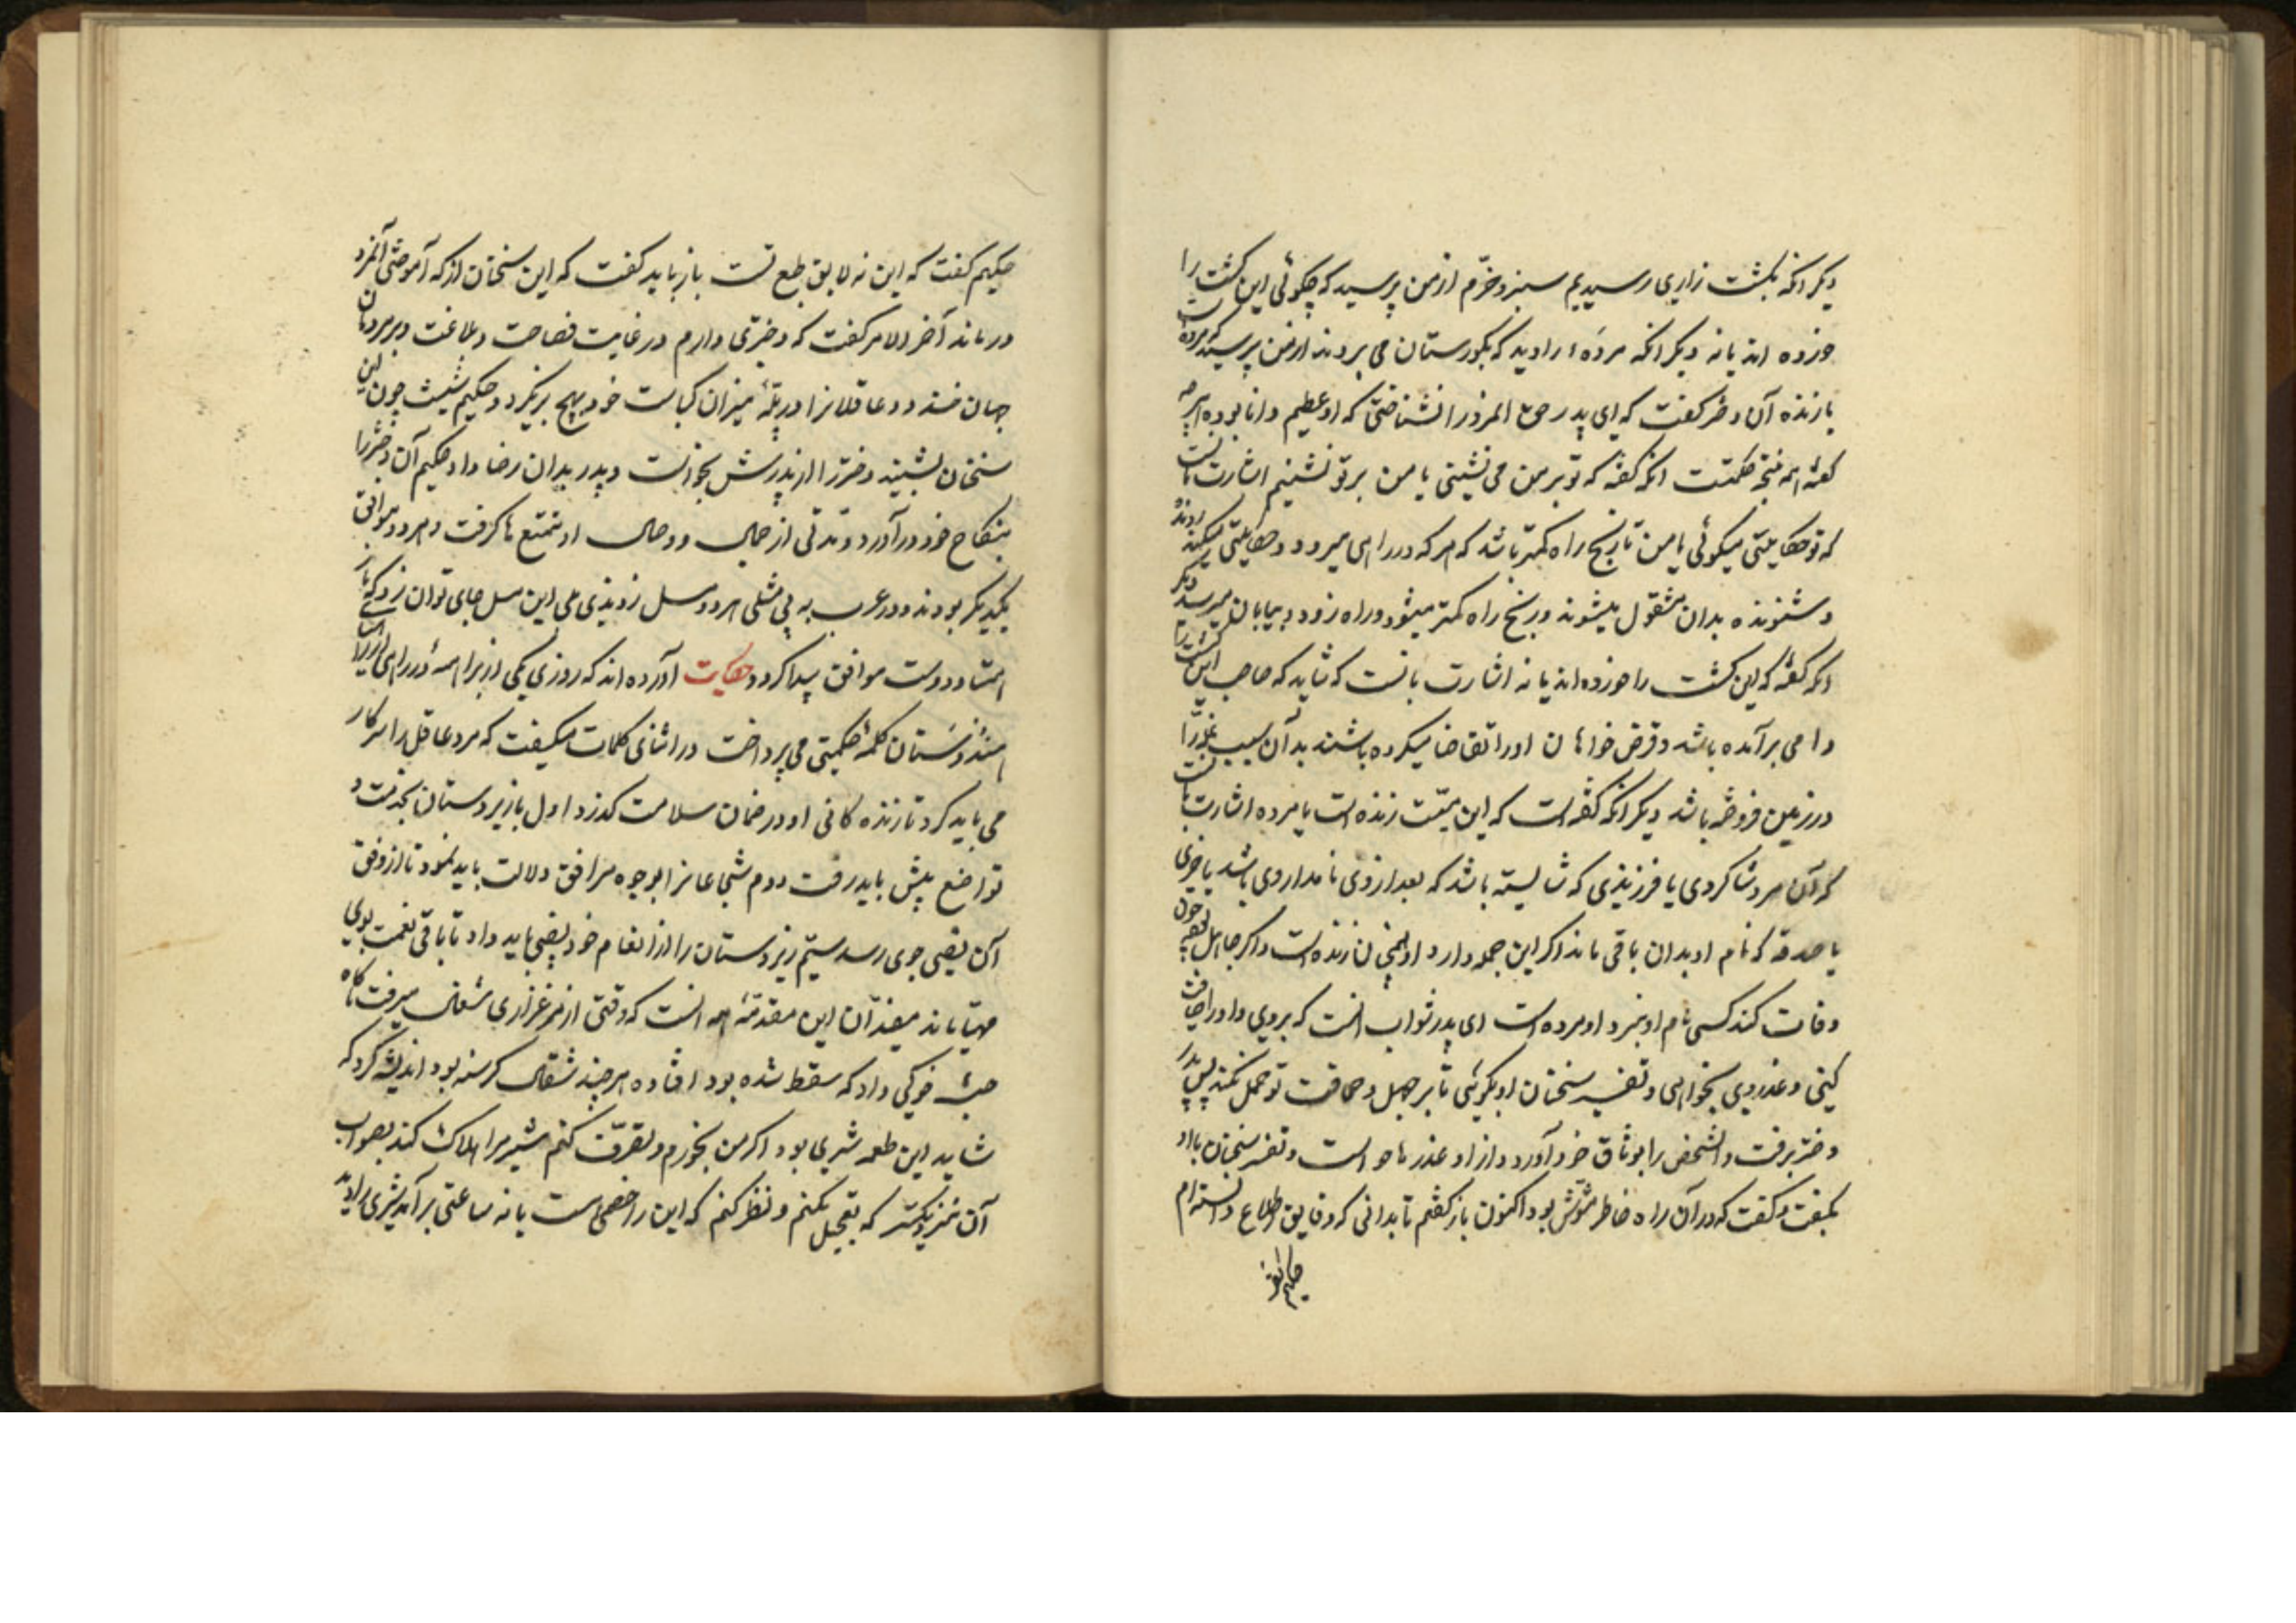 دیگر انکه بکشت زاری رسیدیم سبز و خرّم از من پرسید که چگوئی این کشت را
خورده اند یا نه دیگر انکه مرده‌ء را دید که بکورستان می بردند از من پرسید که مرده است
یا زنده آن دختر کفت که ای پدر حق المرد را نشناختی که او عظیم دانا بوده هرچه
کفته همه نتیجه حکمتست انکه کفته که تو بر من می نشینی یا من بر تو نشینم اشارت بانست
که تو حکایتی میکوئی یا من تا رنج راه کمتر باشد که هرکه در راهی میرود و حکایتی میکند رونده
و شنونده بدان مشغول میشوند و رنج راه کمتر میشود و راه زود بپایان میرسد دیگر
انکه کفته که این کشت را خورده اند یا نه اشارت بانست که شاید که صاحب این کشت را
وامی برآمده باشد و قرض خواهان او را تقاضا میکرده باشند بدآن سبب غلّه را
در زمین فروخته باشد دیگر انکه کفته است که این میّت زنده است یا مرده اشارت بانست
که آن مرد شاکردی یا فرزندی که شایسته باشد که بعد از وی نامدار وی باشد یا خیری
یا صدقه که نام او بدان باقی ماند اکر این جمله دارد او همچنان زنده است و اکر جاهل بوده چون
وفات کند کسی نام او نبرد او مرده است ای پدر ثواب انست که بروی و او را ضیافت
کنی و عذر وی بخواهی و تفسیر سخنان او بکوئی تا بر جهل و حماقت تو حمل نکند پس پدر
دختر برفت و انشخص را بوثاق خود آورد و از او عذرها خواست و تفسیر سخنان با او
بکفت و کفت که در آن راه خاطر مشوّش بود اکنون باز کفتم تا بدانی که دقایق اطلاع داشته ام
حکیم کفت
حکیم کفت که این نه لایق طبع تست باز باید کفت که این سخنان از که آموختی آنمرد
درماند آخر الامر کفت که دختری دارم در غایت فصاحت و بلاغت و بر مردمان
جهان خندد و عاقلانرا در پلّهٔ میزان کیاست خود بهیچ برنکیرد حکیم شیث چون این
سخنان بشنید دختر را از پدرش بخواست و پدر بدان رضا داد حکیم آن دختر را
بنکاح خود درآورد و مدتی از جمال و وصال او تمتع ها کرفت و هر دو موافق
یکدیگر بودند و در عرب به بی مثلی هر دو مثل زدندی بلی این مثل جای توان زد که با
همتا و دوست موافق پیدا کردد حکایت آورده اند که روزی یکی از براهمهٔ در راهی از برای
هندوستان کلمهٔ حکمتی می پرداخت در اثنای کلمات میکفت که مرد عاقل را سه کار
می باید کرد تا زنده کانی او در ضمان سلامت کذرد اول با زیردستان بخدمت و
تواضع پیش باید رفت دوم شجاعانرا بوجوه مرافق دلالت باید نمود تا از وفق
آن نصیبی بوی رسد سیّم زیردستان را از انعام خود نصیبی باید داد تا باقی نعمت بوی
مهیّا ماند مفید آن این مقدّمهٔ همه انست که وقتی از مرغزاری شغالی میرفت ناکاه
جثه خوکی دید که سقط شده بود افتاده هر چند شغال کرسنه بود اندیشه کرد که
شاید این طعمه شیری بود اکر من بخورم و تصرّف کنم شیر مرا هلاک کند بصواب
آن نزدیکتر که تعجیل نکنم و نظر کنم که این را خصمی است یا نه ساعتی برآمد شیری را دید